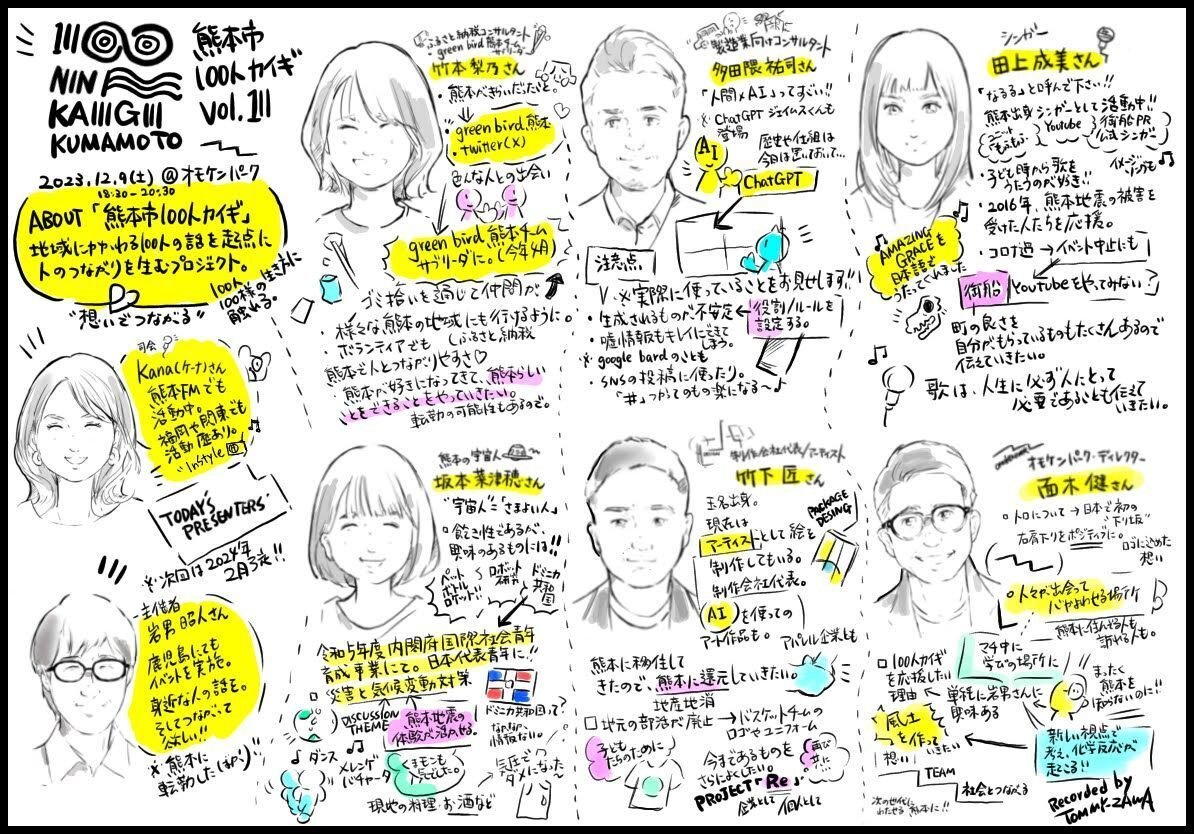 100
NIN
KAIGI
KUMAMOTO
熊本市
100人カイギ
vol.1
2023.12.9(土) @オモケンパーク
18:30-20:30
ABOUT「熊本市100人カイギ」
地域にかかわる100人の話を起点に
人のつながりを生むプロジェクト。
"想いでつながる"
100人
100様の生き方に
触れる。
司会
Kana(ケーナ)さん
熊本FMでも
活動中。
福岡や関東でも
活動歴あり。
"InStyle"
TODAY'S
PRESENTERS
※次回は2024年
2月3日!!
主催者
岩男 昭人さん
鹿児島にても
イベントを実施。
身近な人の話を。
そしてつながって
欲しい!!
※熊本に
転勤した(ばかり)
ふるさと納税コンサルタント
green bird 熊本チーム
サブリーダー
竹本 梨乃さん
・熊本がきらいだったひと。
・green bird 熊本
・twitter(X)
色んな人との出会い
green bird 熊本チーム
サブリーダに。(今年4月)
ゴミ拾いを通じて仲間が
・様々な熊本の地域にも行けるように。
・ボランティアでも
ふるさと納税
熊本で人とつながりやすさ♡
・熊本が好きになってきて、熊本らしい
ことをできることをやっていきたい。
転勤の可能性もあるので。
製造業向けコンサルタント
多田隈 祐司さん
「人間×AI」ってすごい!!
※ChatGPT ジェイムスくんも
登場
歴史や仕組は
今日は置いておいて…
AI
ChatGPT
注意点
※実際に使っていることをお見せします!!
・生成されるものが不安定 ← 役割/ルールを
設定する。
・嘘情報もキレイにできて
しまう。
※google bardのことも
・SNSの投稿に使ったり。
「#」つけてのもの楽になる〜♪
シンガー
田上 成美さん
「なるる」と呼んで下さい!!
熊本出身シンガーとして活動中!!
ユニット
Youtube
街船PR
公式シンガー
イメージ
ソングも
・子ども時から歌を
うたうのが好き!!
・2016年、熊本地震の被害を
受けた人たちを応援。
・コロナ過 → イベント中止にも
AMAZING
GRACEを
日本語で
うたってくれました
街船
YouTubeをやってみない?
町の良さを
自分がもらっているものもたくさんあるので
伝えていきたい。
歌は、人生に必ず人にとって
必要であることも伝えて
いきたい。
熊本の宇宙人
坂本 菜津穂さん
"宇宙人"="さまよい人"
・飽き性であるが、
興味のあるものには!!
ペット
ボトル
ロケット!!
ロボット
研究
ドミニカ
共和国
令和5年度内閣府国際社会青年
育成事業にて。日本代表青年に!!
災害と気候変動対策
DISCUSSION
THEME
熊本地震の
体験が活かせる。
ドミニカ共和国って?
なかなか
情報ない。
♪ダンス
メレンゲ
バチャータ
くまモンも
人気でした。
気圧で
ダメになった〜
現地の料理・お酒など
制作会社代表/アーティスト
竹下 匠さん
玉名出身。
現在は
アーティストとして絵を
制作してもいる。
制作会社代表。
PACKAGE
DESING
AIを使っての
アート作品も。
アパレル企業とも
熊本に移住して
きたので、熊本に還元していきたい。
地産地消
□地元の部活が廃止 → バスケットチームの
ロゴやユニフォーム
子ども
たちのために
今まであるものを
さらによくしたい。
再び
共に
PROJECT「Re」
企業として
個人として
オモケンパーク・ディレクター
面木 健さん
・トロについて → 日本で初の
"下り坂"
右肩下りをポジティブに。
ロゴに込めた
想い
・人々が出会って
熊本に住んでる人も
訪れる人も。
24中に
学びの場所に
□100人カギ
を応援したい
理由
単純に岩男さんに
興味ある
まったく
熊本を
知らないのに!!
風土
を作って
いきたい
想い
新しい視点で
考え、化学反応が
起こる!!
TEAM
社会とつながる
次の世代に
わたせる 熊本に!!
Recorded by
TOMMY-ZAWA